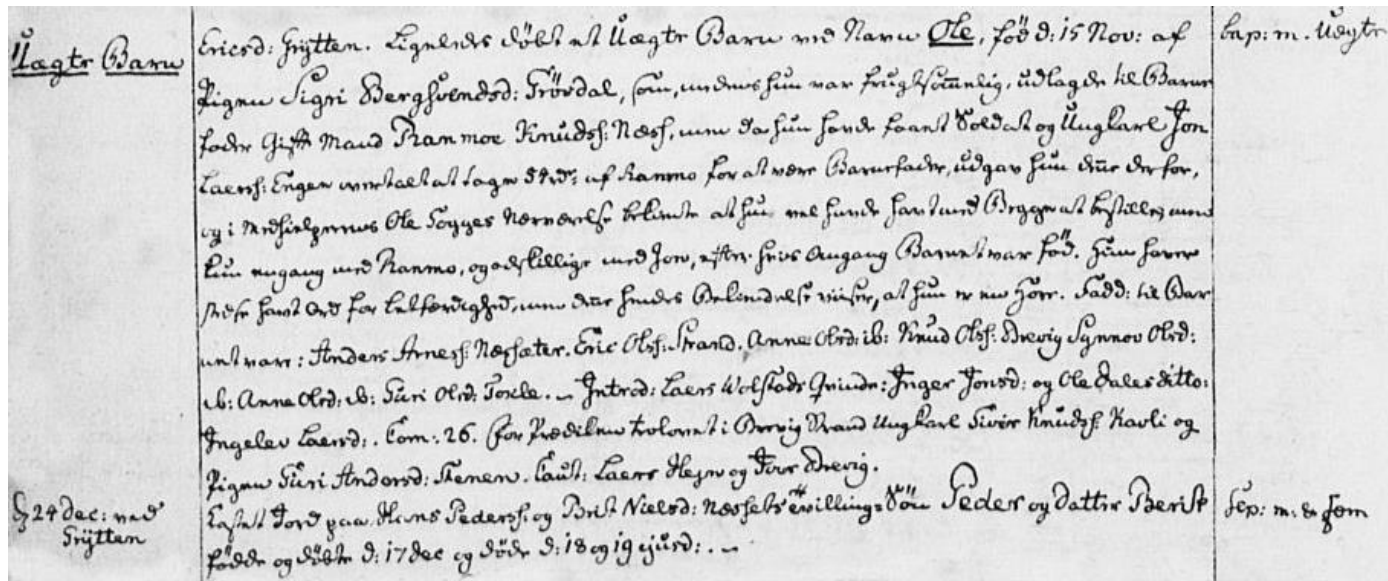 Ericsd: Grÿtten. Ligeledes döbt et Uægte Barn ved Navn Ole, föd d: 15 Nov: af
bap: m. Uægte
Uægte Barn
Pigen Sigri Bergsvendsd: Trövdal, som, medens hun var frugtsom̅elig, udlagde til Barne
fader Gift Mand Ranmoe Knudss: Næss, men da hun havde faaet Soldat og Ungkarl Jon
Laerss: Engen overtalt at tage af Ranmo for at være Barnefader, udgav hun den̅e derfor,
og i Medhielperens Ole Sogges Nærværelse bekiente at hun vel havde havt med Begge at bestille, men
kun engang med Ranmo, og adskillige med Jon, efter hvis Omgang Barnet var föd. Hun haver
havt Ord for Letfærdighed, men den̅e hendes Bekiendelse viiser, at hun er en Hore. Fadd: til Bar
net vare: Anders Arness: Næssæter. Eric Olss: Strand. Anne Olsd: ib: Knud Olss: Brevig Synnov Olsd:
ib: Anne Olsd: ib: Guri Olsd: Torle. – Introd: Laers Wolstads Qvinde: Inger Jonsd: og Ole Dales ditto:
Ingelev Laersd: . Com: 26. For Prædiken trolovet i Brevig Strand Ungkarl Siver Knudss: Kavli og
Pigen Guri Andersd: Stenen. Caut: Laers Hejm og Iver Brevig.
D 24 Dec: ved
Grÿtten
Kastet Jord paa Hans Pederss: og Brit Nielsd: Næssets tvillinge Sön Peder og Datter Berit
Sep: m: & fem
födde og döbte d: 17 Dec og döde d: 18 og 19 ejusd: . –